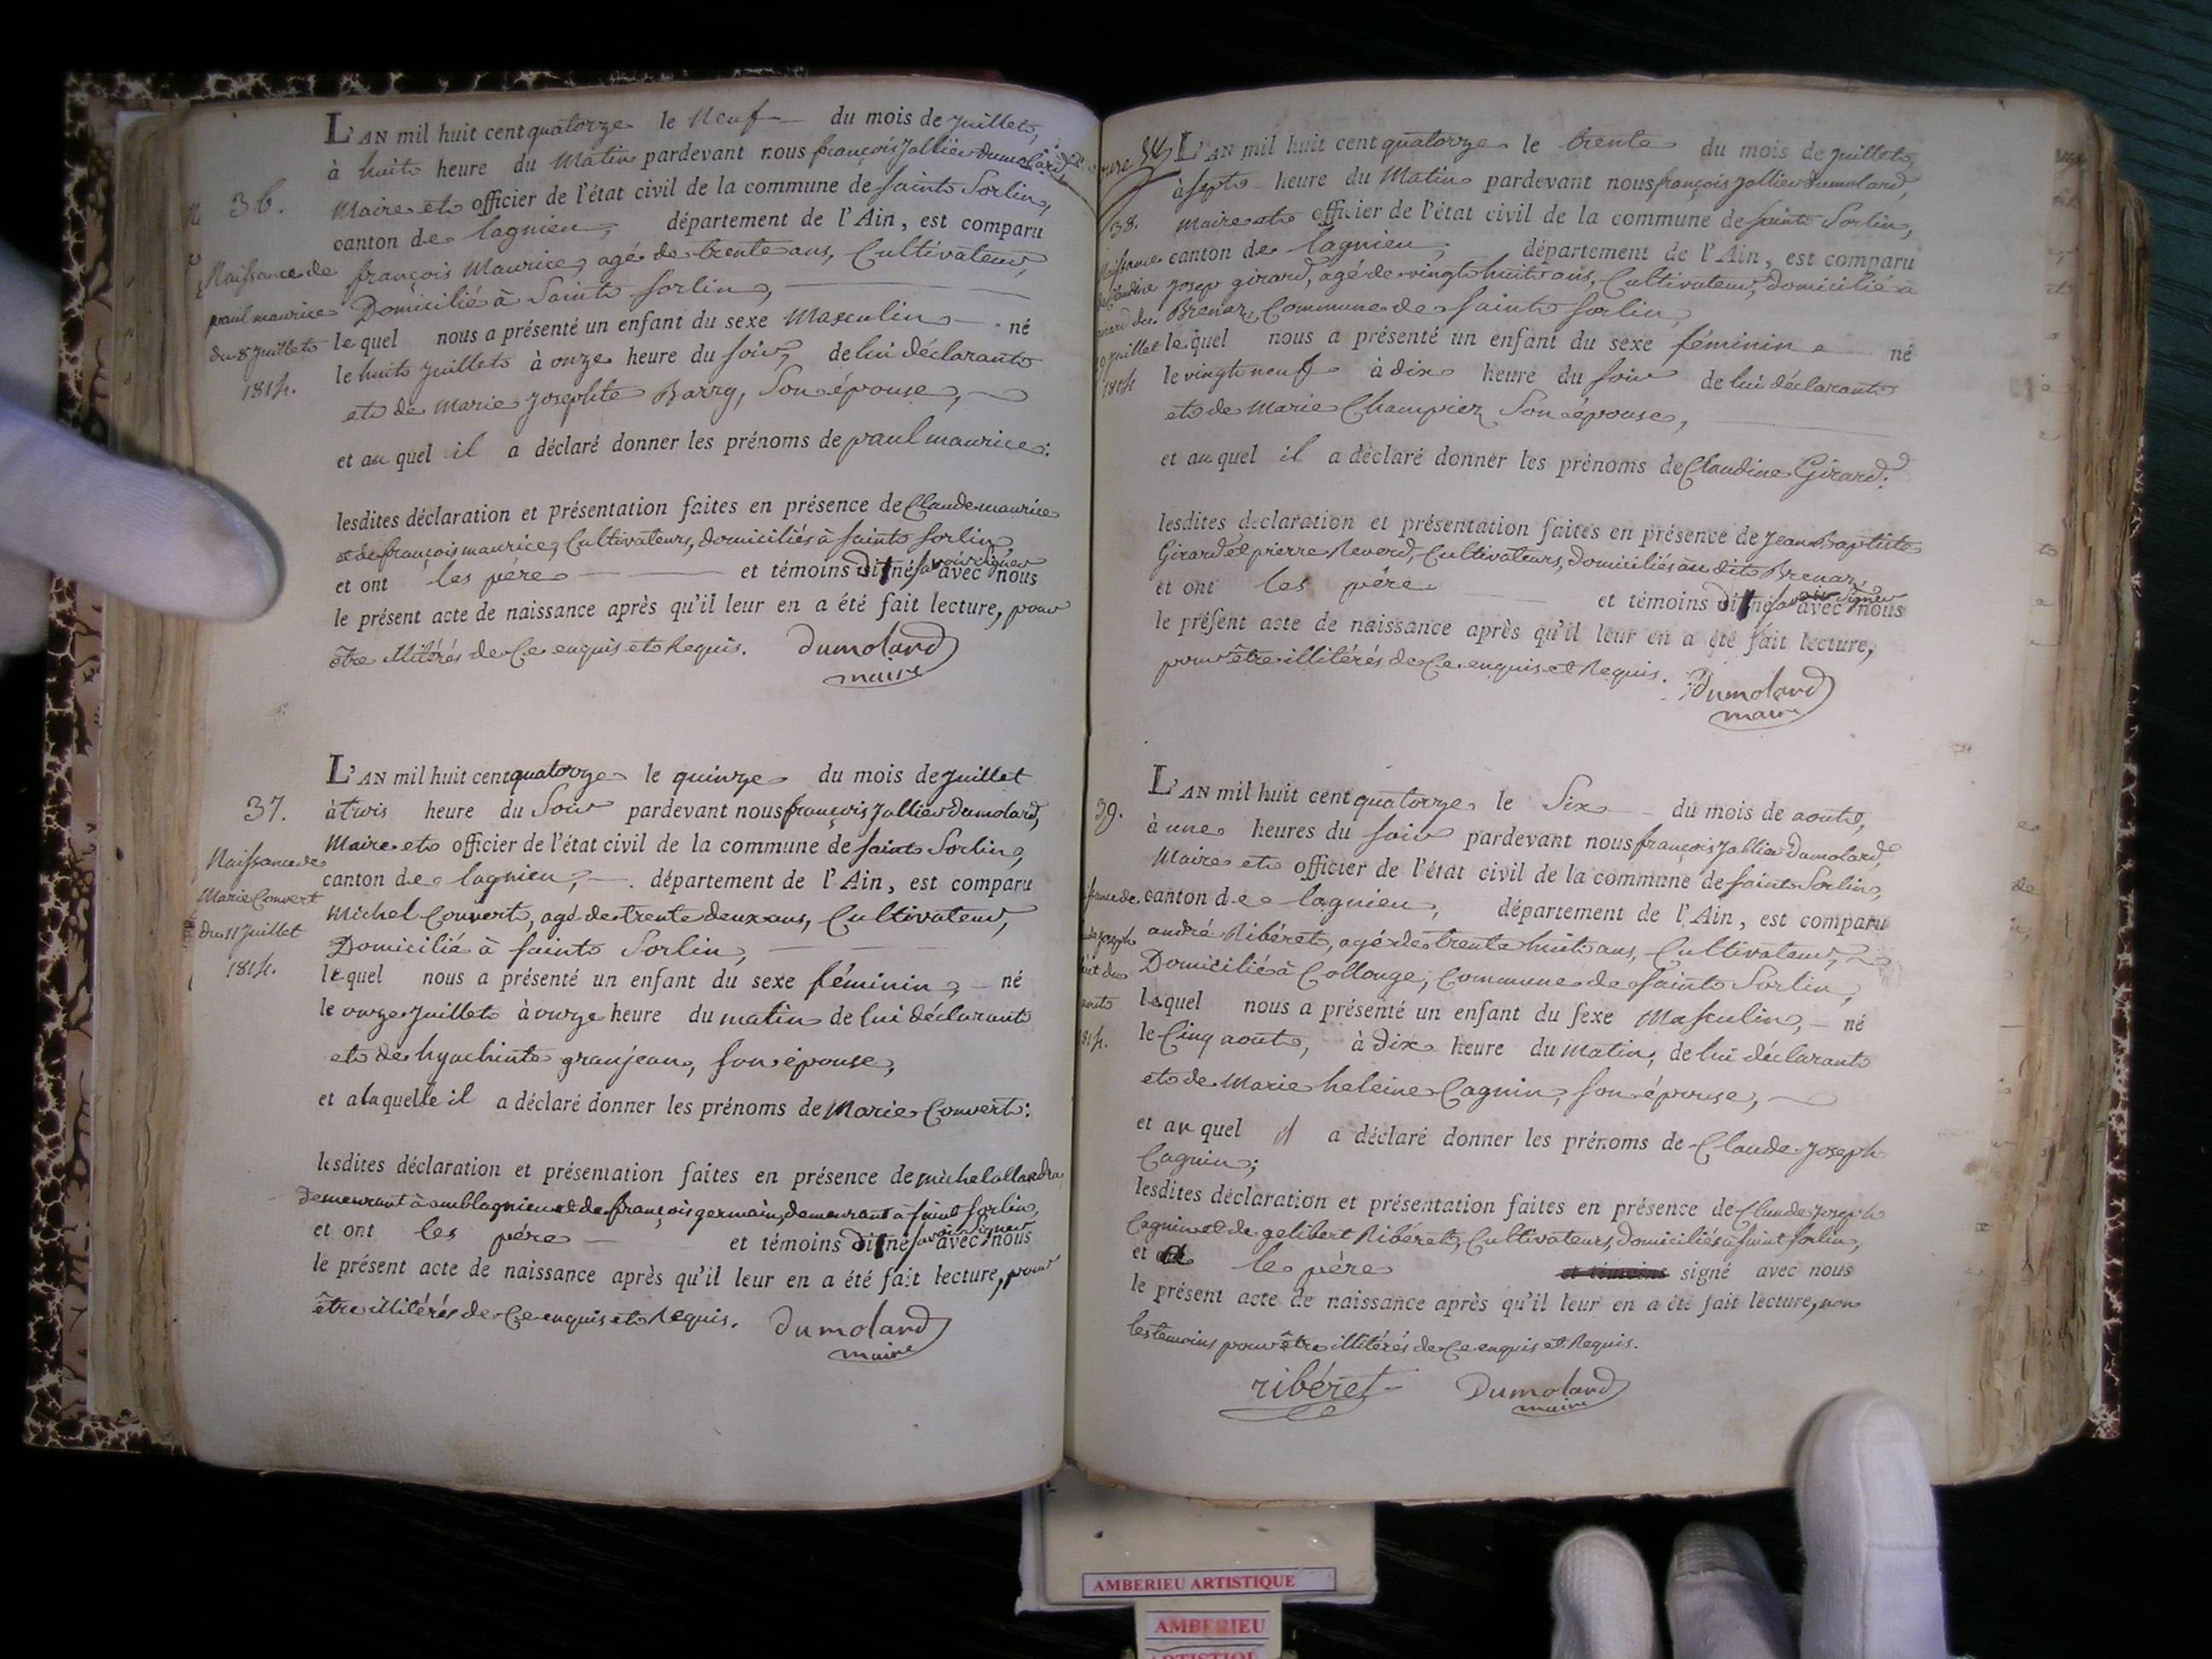 L'AN mil huit cent quatorze le Neuf du mois de juillet,
à huit heure du Matin pardevant nous françois Jallier dumolard,
36.
Maire et officier de l'état civil de la commune de saint Sorlin,
canton de lagnieu, département de l'Ain, est comparu
Naissance de
françois Maurice, agé de trente ans, Cultivateur,
paul maurice
Domicilié à Saint Sorlin,
du 8 Juillet
le quel nous a présenté un enfant du sexe Masculin né
1814.
le huit juillet à onze heure du soir, de lui déclarant
et de Marie josephte Barry, Son épouse,
et au quel il a déclaré donner les prénoms de paul maurice:
lesdites déclaration et présentation faites en présence de Claude maurice
et de françois maurice, Cultivateurs, domiciliés à saint Sorlin
et ont les père et témoins dit né savoir signer avec nous
le présent acte de naissance après qu'il leur en a été fait lecture, pour
être illitérés de Ce enquis et Requis. Dumolard
maire
L'AN mil huit cent quatorze le quinze du mois de juillet
37.
à trois heure du Soir pardevant nous françois Jallier dumolard,
Maire et officier de l'état civil de la commune de saint Sorlin,
Naissance de
canton de lagnieu, département de l'Ain, est comparu
Marie Convert
Michel Convert, agé de trente deux ans, Cultivateur,
du 11 Juillet
Domicilié à saint Sorlin,
1814.
le quel nous a présenté un enfant du sexe féminin, né
le onze juillet à onze heure du matin de lui déclarant
et de hyachinte granjean, son épouse,
et a laquelle il a déclaré donner les prénoms de Marie Convert:
lesdites déclaration et présentation faites en présence de michel
demeurant à amblagnieu et de françois germain, demeurant à saint Sorlin,
et ont les père et témoins dit né savoir signer avec nous
le présent acte de naissance après qu'il leur en a été fait lecture, pour
être illitérés de Ce enquis et Requis. Dumolard
maire
L'AN mil huit cent quatorze le trente du mois de juillet,
à sept heure du Matin pardevant nous françois Jallier dumolard,
38.
Maire et officier de l'état civil de la commune de saint Sorlin,
canton de lagnieu, département de l'Ain, est comparu
josep girard, agé de vingt huit ans, Cultivateur, domicilié à
Brenaz, Commune de saint Sorlin,
juillet
le quel nous a présenté un enfant du sexe féminin né
1814
le vingt neuf à dix heure du soir de lui déclarant
et de Marie Champier Son épouse,
et au quel il a déclaré donner les prénoms de Claudine Girard:
lesdites declaration et présentation faites en présence de Jean Baptiste
Girard et pierre Reverd, Cultivateurs, Domiciliés au dit Brenaz,
et ont les père et témoins dit né savoir signer avec nous
le présent acte de naissance après qu'il leur en a été fait lecture,
pour être illitérés de Ce enquis et Requis.
Dumolard
maire
L'AN mil huit cent quatorze le Six du mois de aout,
39.
à une heures du soir pardevant nous françois Jallier Dumolard,
Maire et officier de l'état civil de la commune de saint Sorlin,
canton de lagnieu, département de l'Ain, est comparu
andré Ribéret, agé de trente huit ans, Cultivateur,
Domicilié à Collonge, Commune de saint Sorlin,
lequel nous a présenté un enfant du sexe Masculin, né
le Cinq aout, à dix heure du matin, de lui déclarant
et de Marie heleine Cagnin, son épouse,
et au quel il a déclaré donner les prénoms de Claude Joseph
Cagnin;
lesdites déclaration et présentation faites en présence de Claude Joseph
Cagnin et de gelibert Ribéret, Cultivateurs, domiciliés à saint Sorlin,
et le père et témoins signé avec nous
le présent acte de naissance après qu'il leur en a été fait lecture, non
les temoins pour être illitérés de Ce enquis et Requis.
ribéret Dumolard
maire
AMBERIEU ARTISTIQUE
AMBERIEU
ARTISTIQUE